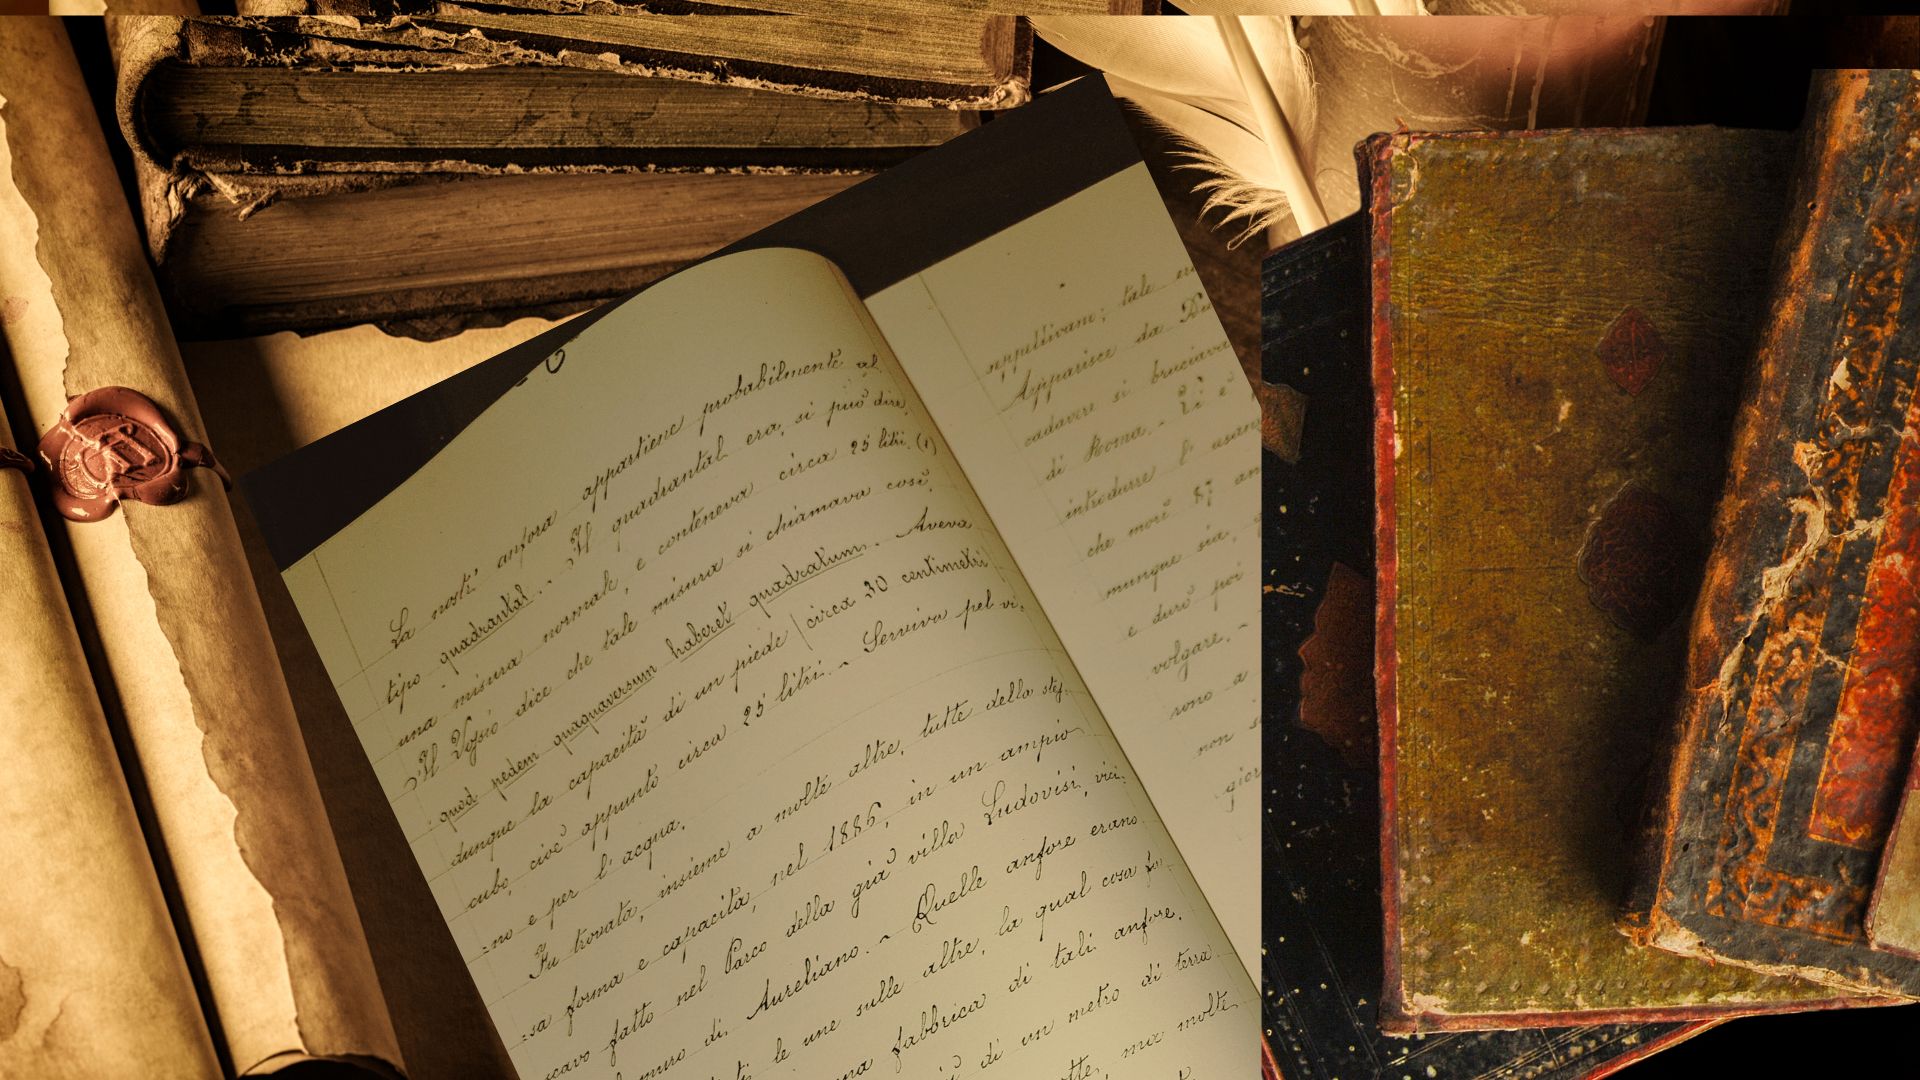 La nostr' anfora appartiene probabilmente al
tipo quadrantal. - Il quadrantal era, si può dire,
una misura normale, e conteneva circa 25 litri. (1)
Il dice che tale misura si chiamava così,
quod pedem quaquaversum haberet quadratum. Aveva
dunque la capacità di un piede (circa 30 centimetri)
cubo, cioè appunto circa 25 litri. - Serviva pel vi:
:no e per l' acqua.
Fu trovata, insieme a molte altre, tutte della stes:
:sa forma e capacità, nel 1886, in un ampio
scavo fatto nel Parco della già villa Ludovisi, vici:
muro di Aureliano. - Quelle anfore erano
le une sulle altre, la qual cosa fa
fabbrica di tali anfore.
di un metro di terra
ma molte
seppellivano; tale
Apparisce da
cadavere si bruciava
di Roma. -
introdurre l'
che morì
munque sia,
e durò poi
volgare. -
rono a
non